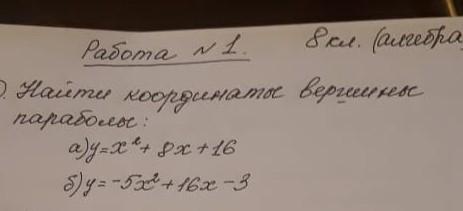 Работа № 1. 8 кл. (алгебра)
). Найти координаты вершины
параболы:
а) y=x²+ 8x+16
б) y= -5x²+16x -3